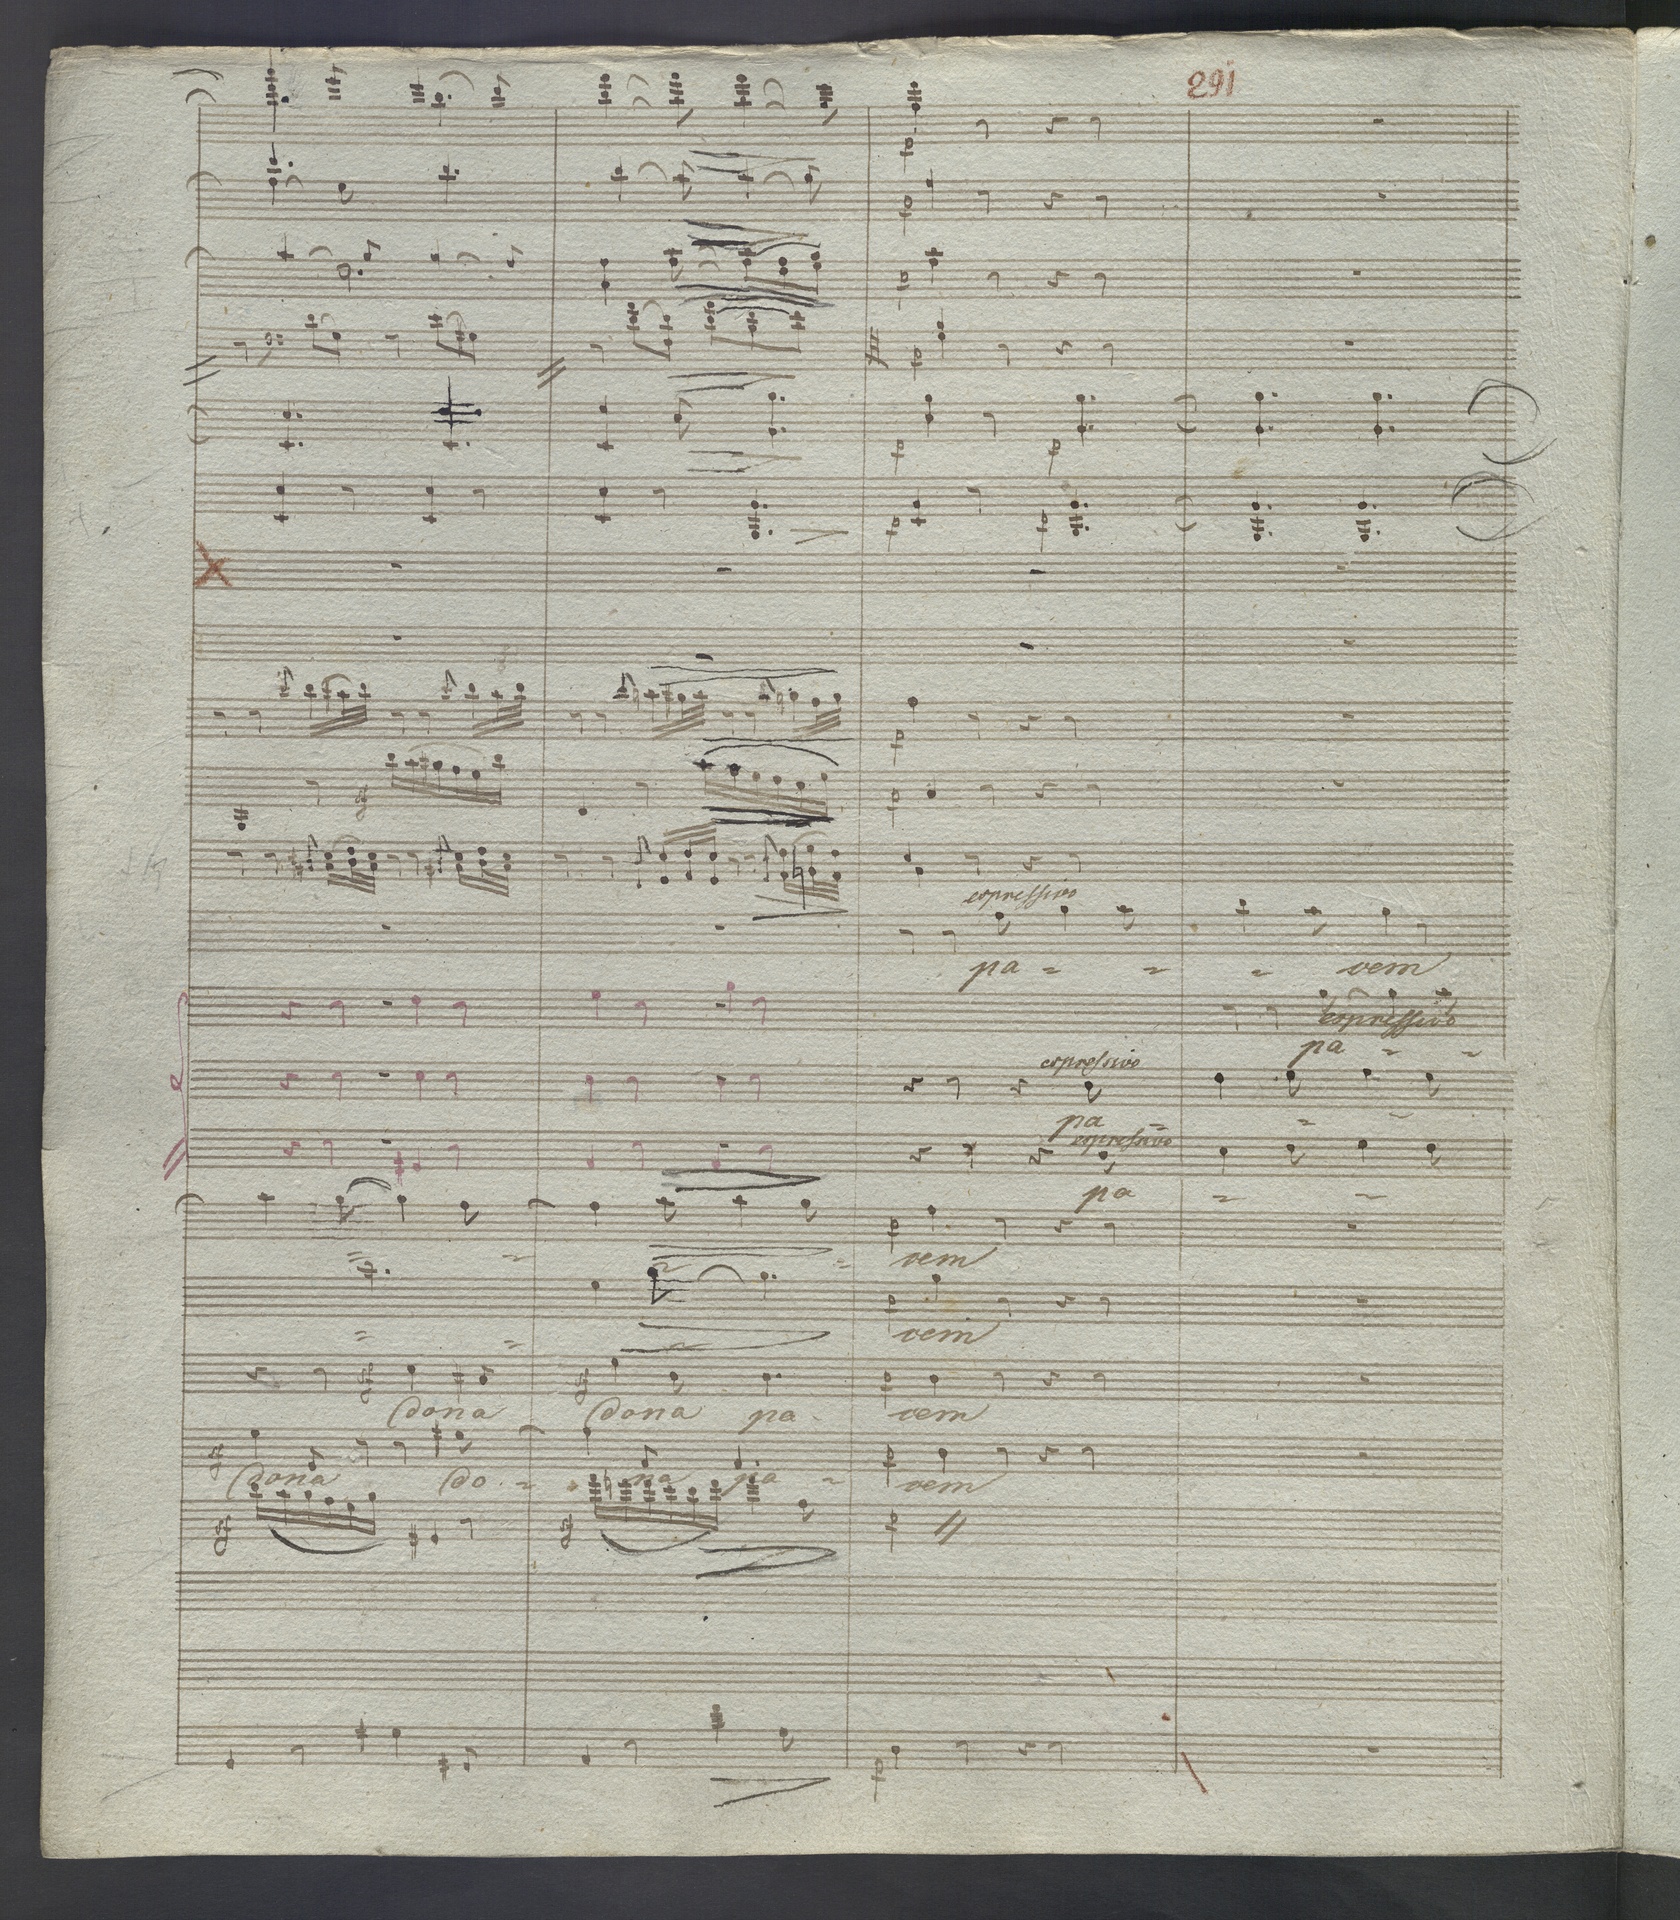 291
espressivo
pa - - - cem
espressivo
pa - -
espressivo
pa - - -
espressivo
pa - -
cem
cem
Dona Dona pa - cem
Dona Do - na pa - cem